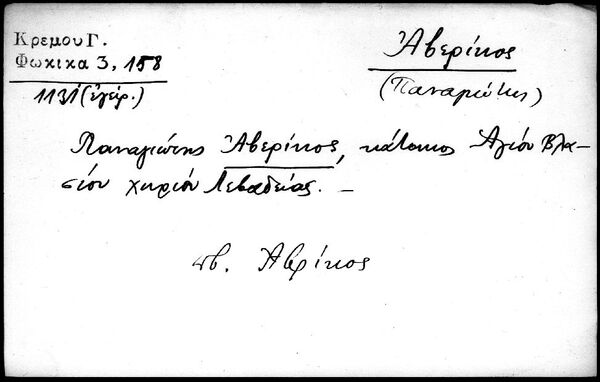 Κρεμου Γ.
Φωκικα 3, 158
1131 (ἐγείρ.)
Ἀβερίκος
(Παναγιώτης)
Παναγιώτης Ἀβερίκος, κάτοικος Ἁγίου Βλα-
σίου χωρίου Λεβαδείας. –
πβ. Ἀβρίκος